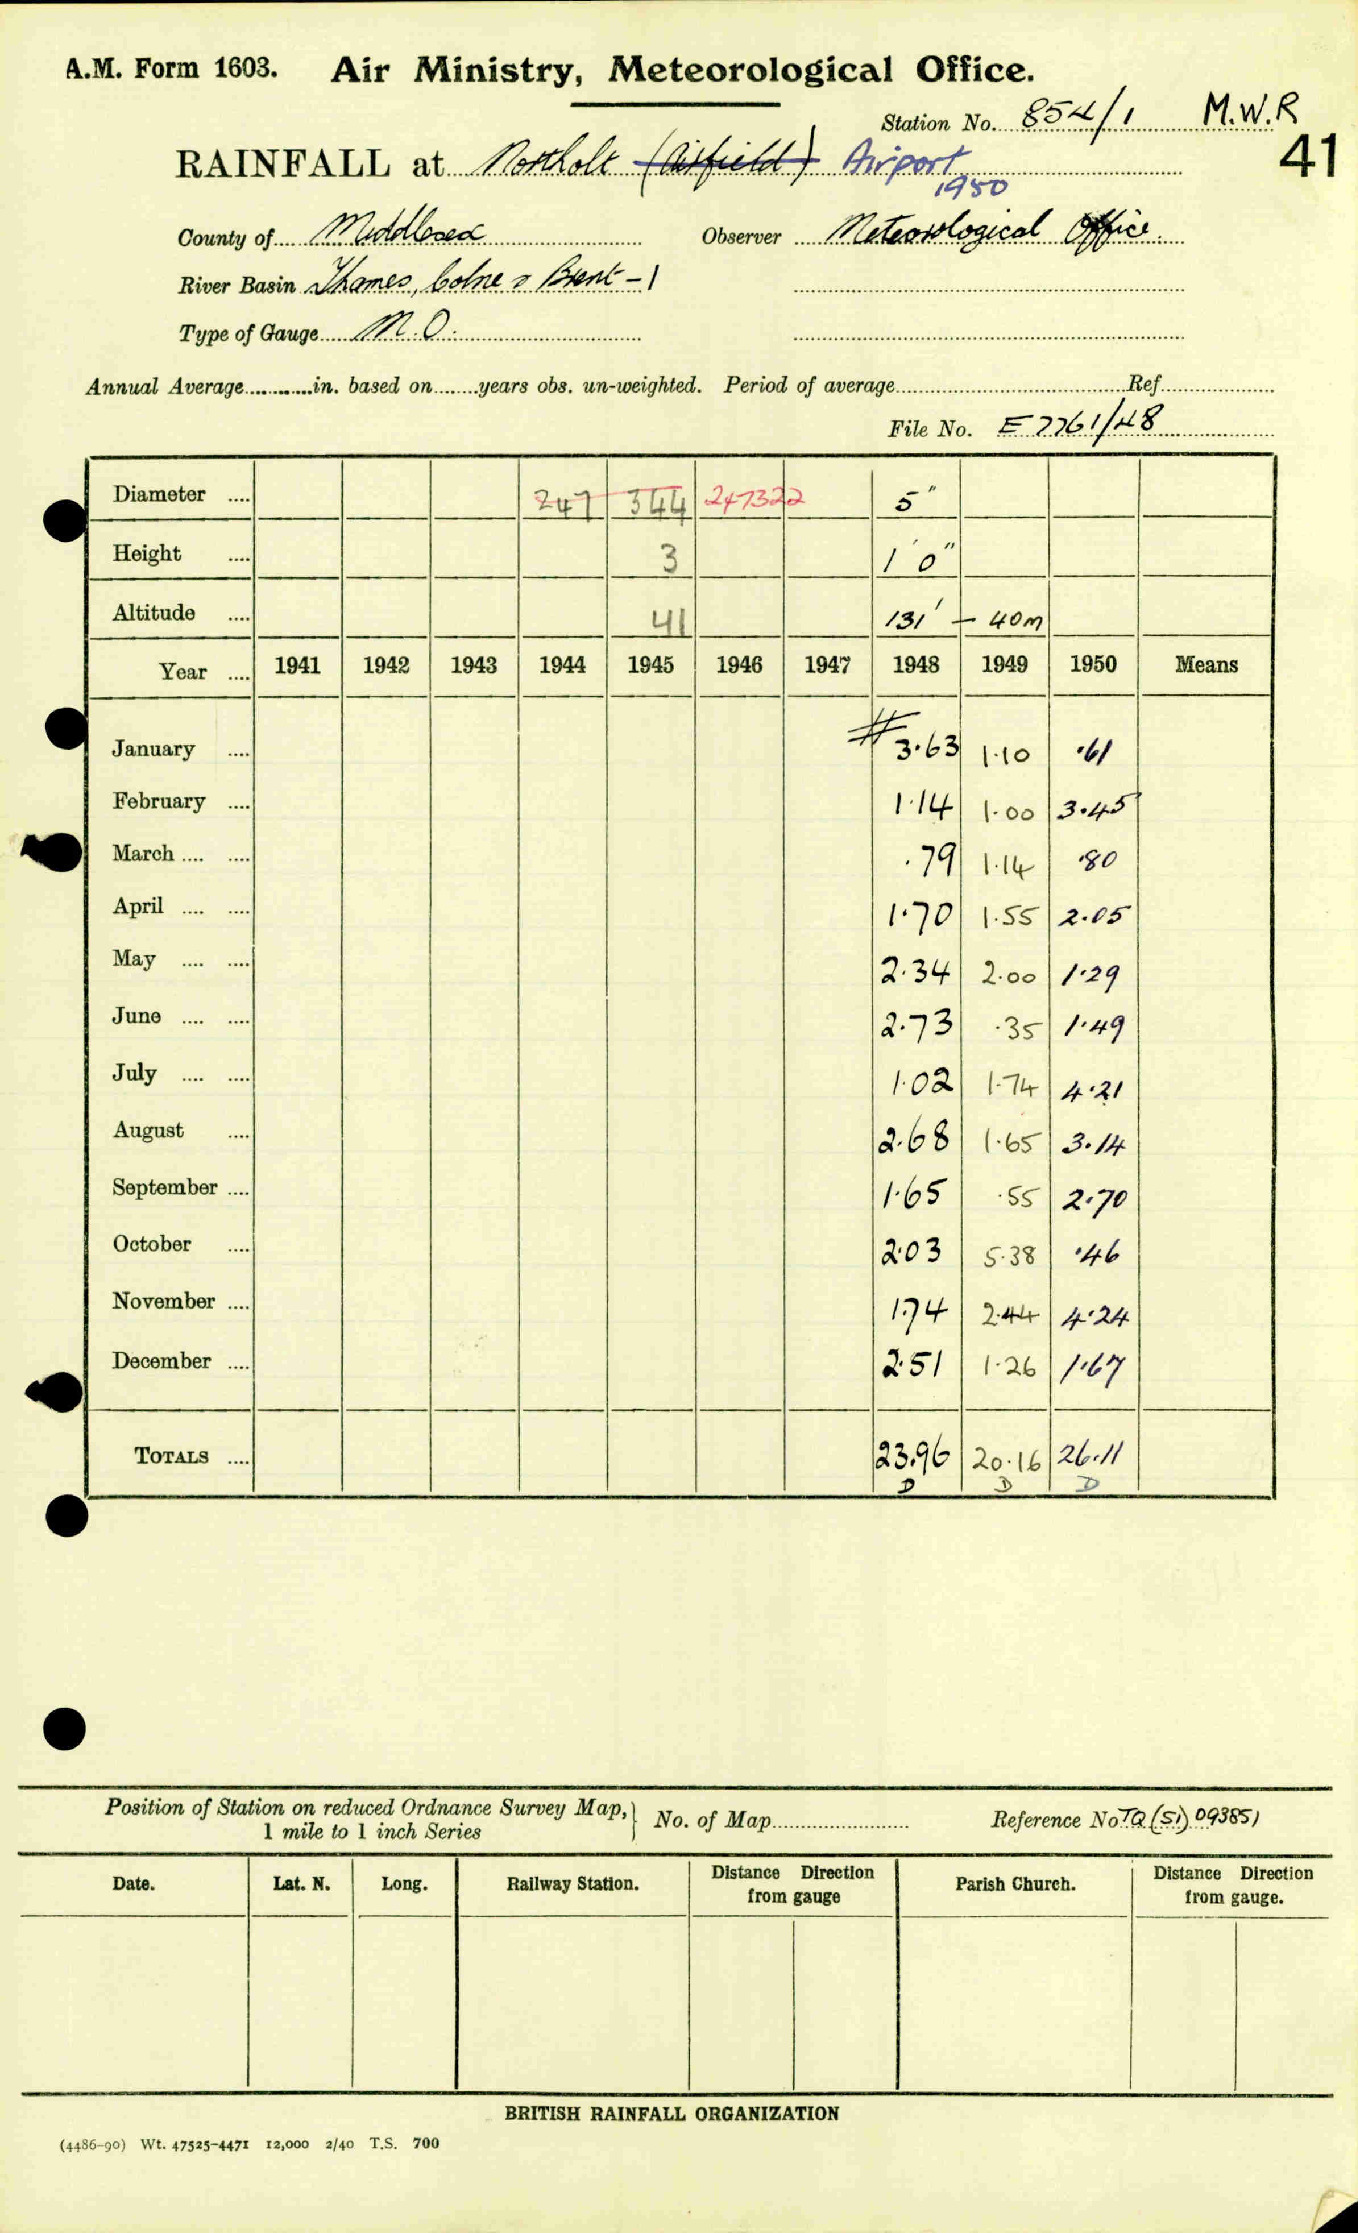 A.M. Form 1603. Air Ministry, Meteorological Office.
Station No. 854/1 M.W.R
41
RAINFALL at Northolt (Airfield) Airport
1950
County of Middlesex Observer Meteorological Office.
River Basin Thames, Colne & Brent - 1
Type of Gauge M.O.
Annual Average in. based on years obs. un-weighted. Period of average Ref
File No. E 7761/48
Diameter 247 344 247322 5"
Height 3 1' 0"
Altitude 41 131' - 40m
Year 1941 1942 1943 1944 1945 1946 1947 1948 1949 1950 Means
January # 3.63 1.10 .61
February 1.14 1.00 3.45
March .79 1.14 .80
April 1.70 1.55 2.05
May 2.34 2.00 1.29
June 2.73 .35 1.49
July 1.02 1.74 4.21
August 2.68 1.65 3.14
September 1.65 .55 2.70
October 2.03 5.38 .46
November 1.74 2.44 4.24
December 2.51 1.26 1.67
TOTALS 23.96 20.16 26.11
D D D
Position of Station on reduced Ordnance Survey Map, } No. of Map Reference No TQ (51) 093851
1 mile to 1 inch Series
Date. Lat. N. Long. Railway Station. Distance Direction from gauge Parish Church. Distance Direction from gauge.
BRITISH RAINFALL ORGANIZATION
(4486-90) Wt. 47525-4471 12,000 2/40 T.S. 700